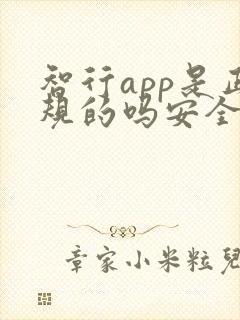 智行app是正
规的吗安全
章家小米粒兒